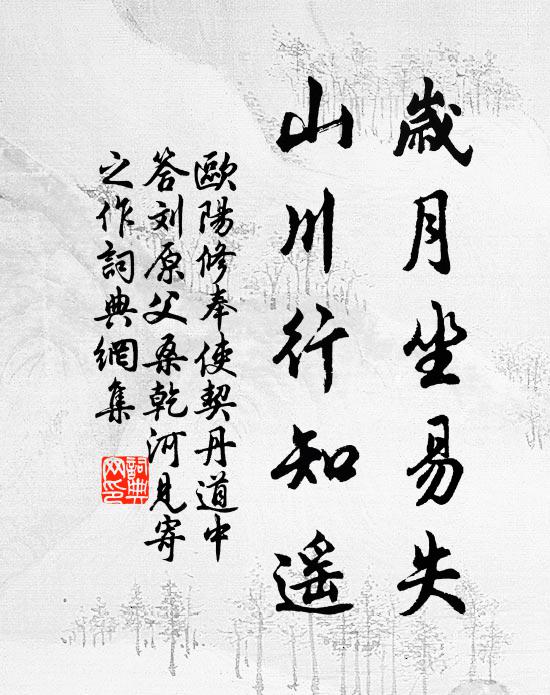 歲月坐易失
山川行知遥
歐陽修奉使契丹道中
答刘原父桑乾河見寄
之作詞典網集
詞典
网印